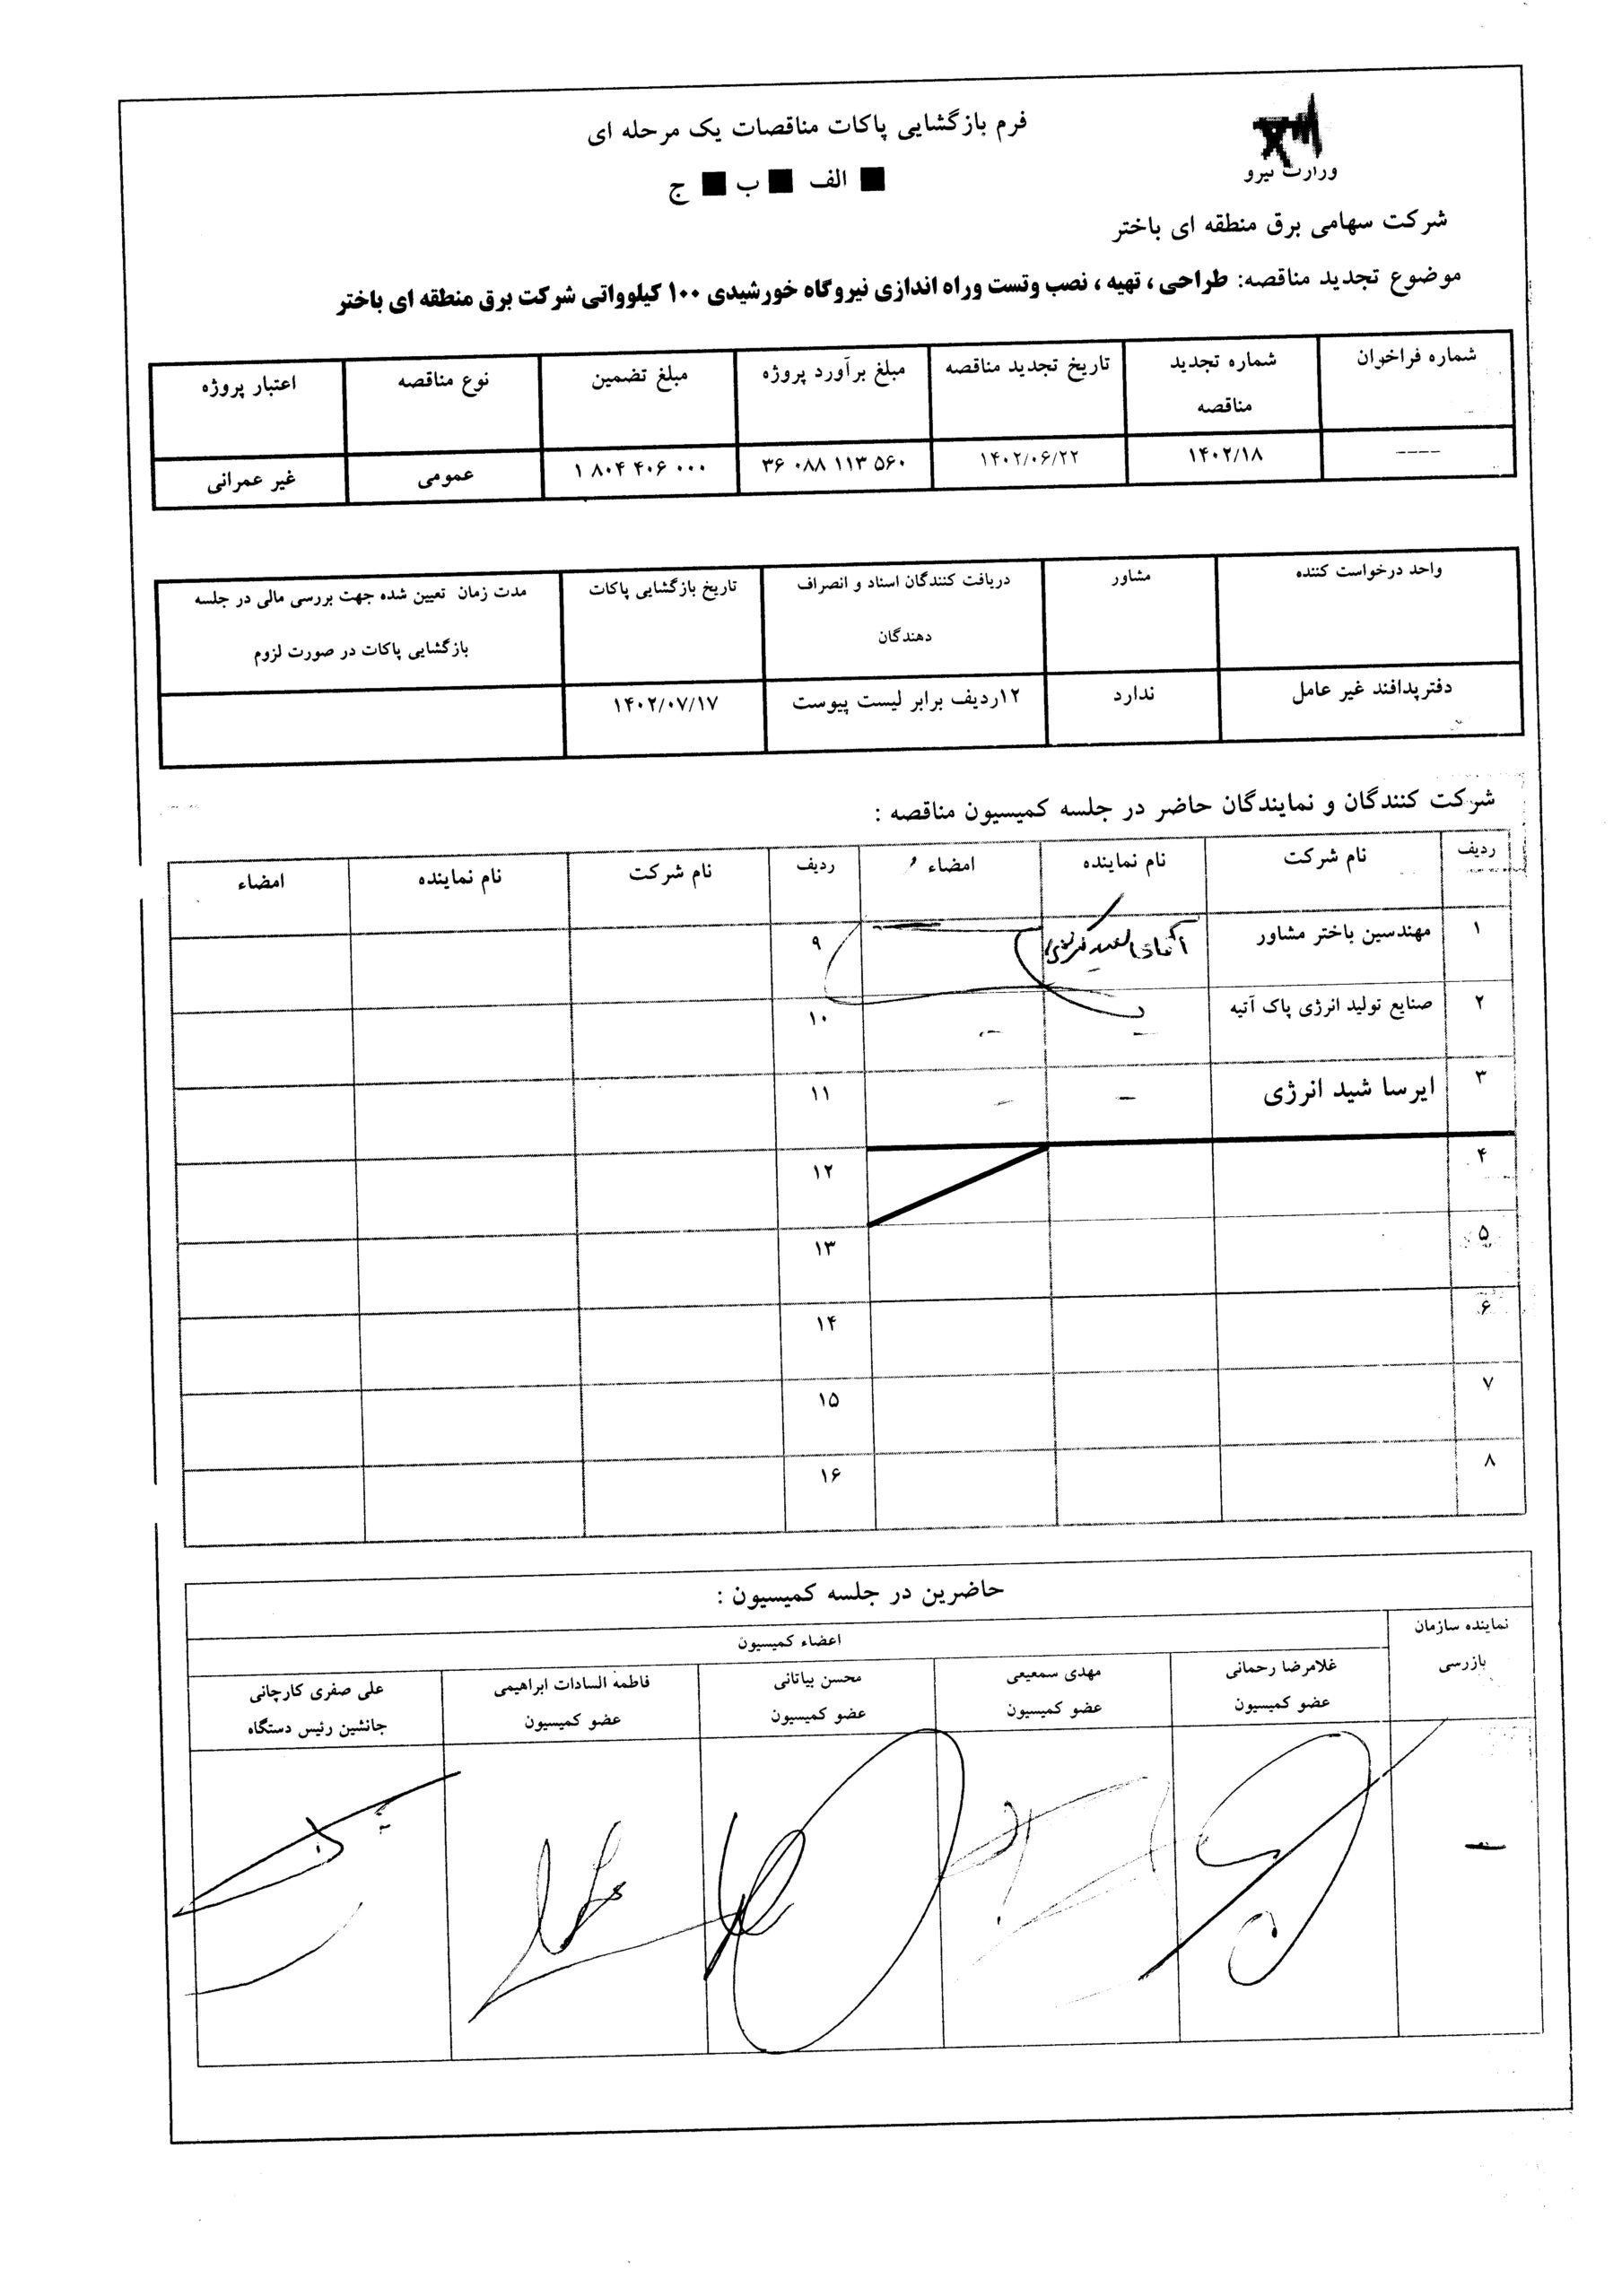 فرم بازگشایی پاکات مناقصات یک مرحله ای
وزارت نیرو
■ الف ■ ب ■ ج
شرکت سهامی برق منطقه ای باختر
موضوع تجدید مناقصه: طراحی ، تهیه ، نصب وتست وراه اندازی نیروگاه خورشیدی ۱۰۰ کیلوواتی شرکت برق منطقه ای باختر
شماره فراخوان
شماره تجدید
مناقصه
تاریخ تجدید مناقصه
مبلغ برآورد پروژه
مبلغ تضمین
نوع مناقصه
اعتبار پروژه
----
۱۴۰۲/۱۸
۱۴۰۲/۰۶/۲۲
۳۶ ۰۸۸ ۱۱۳ ۵۶۰
۱ ۸۰۴ ۴۰۶ ۰۰۰
عمومی
غیر عمرانی
واحد درخواست کننده
مشاور
دریافت کنندگان اسناد و انصراف
دهندگان
تاریخ بازگشایی پاکات
مدت زمان تعیین شده جهت بررسی مالی در جلسه
بازگشایی پاکات در صورت لزوم
دفترپدافند غیر عامل
ندارد
۱۲ردیف برابر لیست پیوست
۱۴۰۲/۰۷/۱۷
شرکت کنندگان و نمایندگان حاضر در جلسه کمیسیون مناقصه :
ردیف نام شرکت نام نماینده امضاء ردیف نام شرکت نام نماینده امضاء
۱ مهندسین باختر مشاور ۹
۲ صنایع تولید انرژی پاک آتیه - - ۱۰
۳ ایرسا شید انرژی - - ۱۱
۴ ۱۲
۵ ۱۳
۶ ۱۴
۷ ۱۵
۸ ۱۶
حاضرین در جلسه کمیسیون :
نماینده سازمان
بازرسی
اعضاء کمیسیون
غلامرضا رحمانی
عضو کمیسیون
مهدی سمعیعی
عضو کمیسیون
محسن بیاتانی
عضو کمیسیون
فاطمه السادات ابراهیمی
عضو کمیسیون
علی صفری کارچانی
جانشین رئیس دستگاه
-